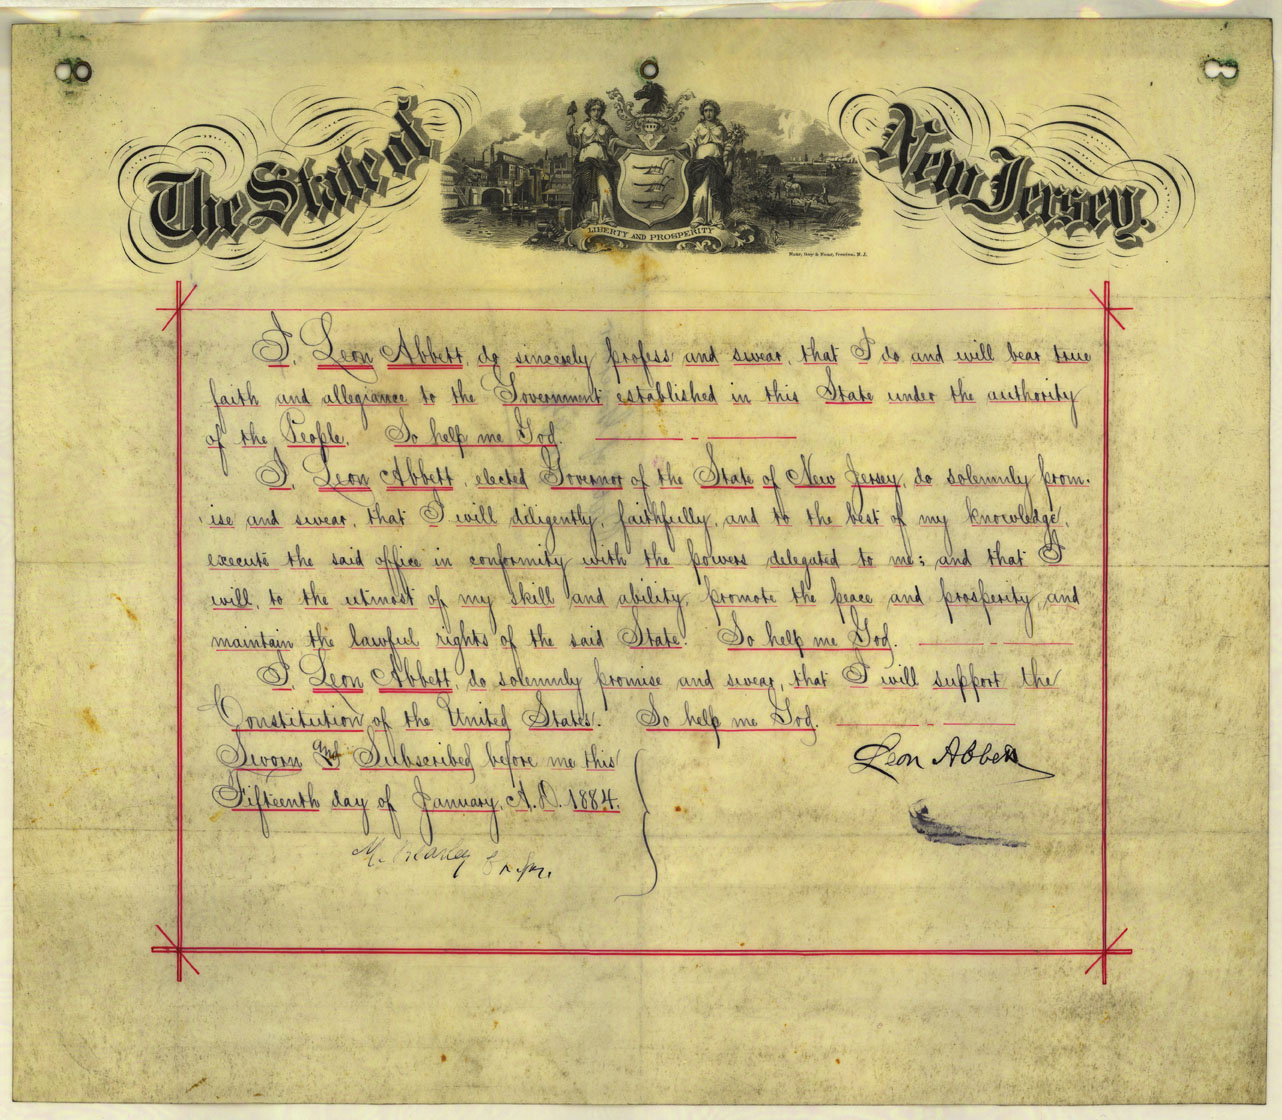 The State of New Jersey.
LIBERTY AND PROSPERITY
I, Leon Abbett, do sincerely profess and swear, that I do and will bear true
faith and allegiance to the Government established in this State under the authority
of the People. So help me God.
I, Leon Abbett, elected Governor of the State of New Jersey, do solemnly prom-
ise and swear, that I will diligently, faithfully, and to the best of my knowledge,
execute the said office in conformity with the powers delegated to me; and that I
will, to the utmost of my skill and ability, promote the peace and prosperity, and
maintain the lawful rights of the said State. So help me God.
I, Leon Abbett, do solemnly promise and swear, that I will support the
Constitution of the United States. So help me God.
Sworn and Subscribed before me this
Fifteenth day of January, A.D. 1884.
Leon Abbett
M. Beasley